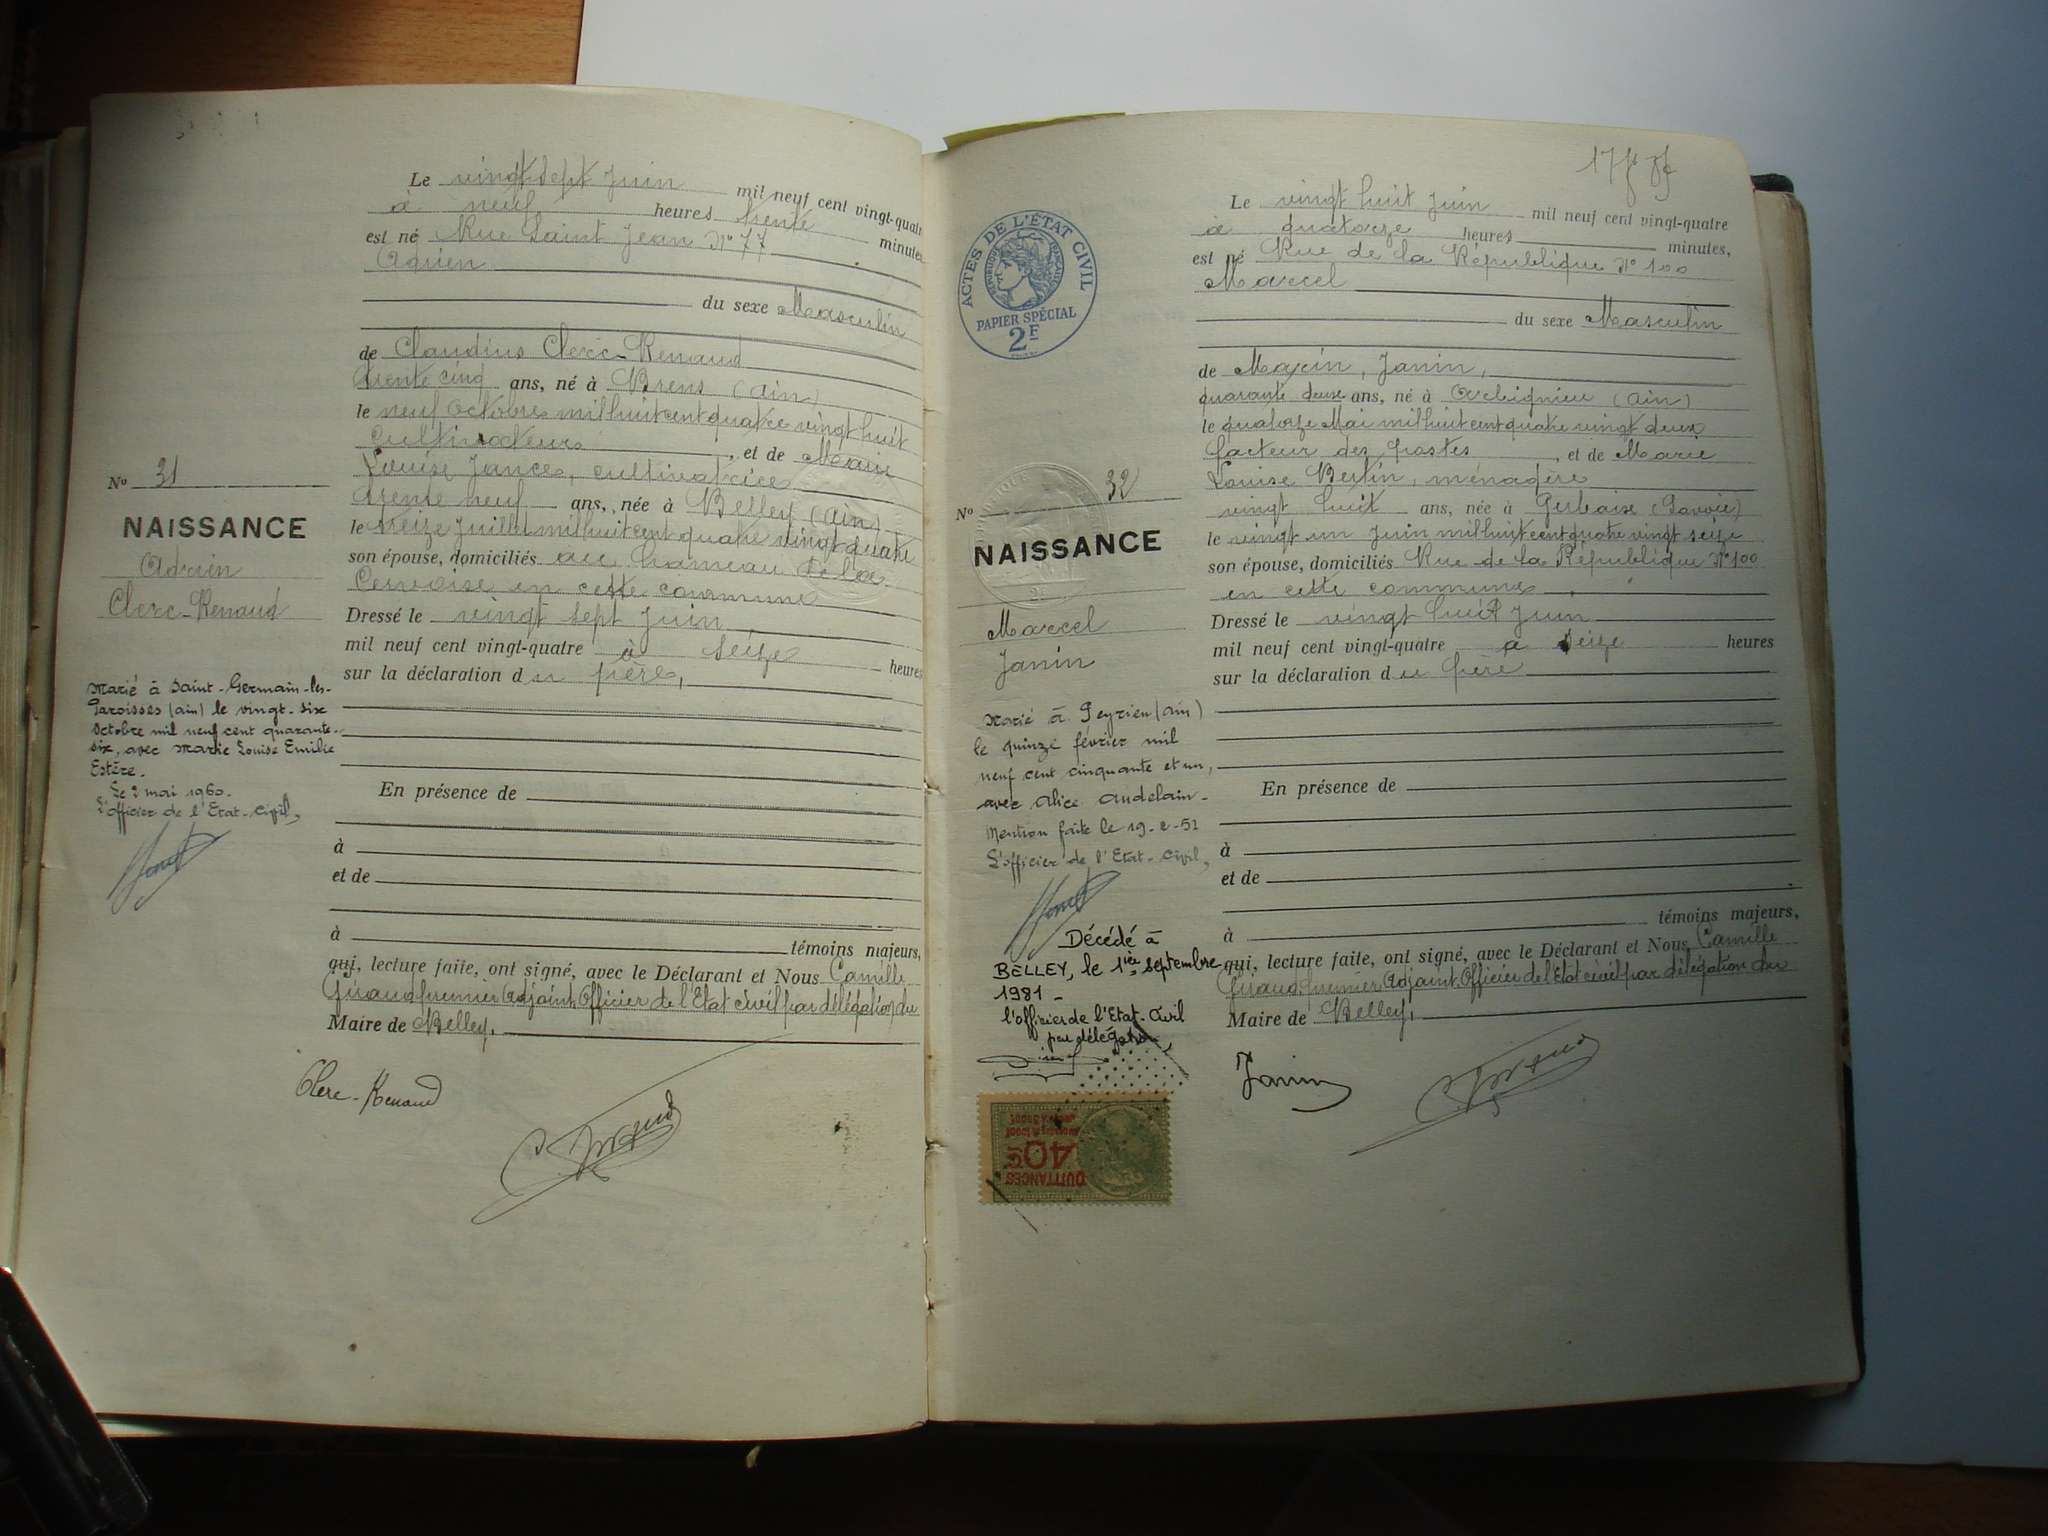 Le vingt sept Juin mil neuf cent vingt-quatre
à neuf heures trente minutes
est né Rue Saint Jean N° 77
Adrien
du sexe Masculin
de Claudius Clerc-Renaud
trente cinq ans, né à Brens (Ain)
le neuf Octobre mil huit cent quatre vingt huit
cultivateur, et de Marie
Louise Jance, cultivatrice
trente neuf ans, née à Belley (Ain)
le treize Juillet mil huit cent quatre vingt quatre
son épouse, domiciliés au hameau de la
Cervoise en cette commune
Dressé le vingt sept Juin
mil neuf cent vingt-quatre à seize heures
sur la déclaration du père,
En présence de
à
et de
à témoins majeurs,
qui, lecture faite, ont signé, avec le Déclarant et Nous Camille
Giraud premier Adjoint, Officier de l'Etat civil par délégation du
Maire de Belley,
Clerc-Renaud
N° 31
NAISSANCE
Adrien
Clerc-Renaud
Marié à Saint-Germain-les-
Paroisses (ain) le vingt-six
Octobre mil neuf cent quarante-
six, avec Marie Louise Emilie
Estère.
Le 2 mai 1960.
L'officier de l'Etat-Civil,
ACTES DE L'ÉTAT CIVIL
RÉPUBLIQUE FRANÇAISE
PAPIER SPÉCIAL
2F
Le vingt huit Juin mil neuf cent vingt-quatre
à quatorze heures minutes,
est né Rue de la République N° 100
Marcel
du sexe Masculin
de Marin, Janin,
quarante deux ans, né à Arbignieu (Ain)
le quatorze Mai mil huit cent quatre vingt deux
facteur des postes, et de Marie
Louise Bertin, ménagère
vingt huit ans, née à Gerbaise (Savoie)
le vingt un Juin mil huit cent quatre vingt seize
son épouse, domiciliés Rue de la République N° 100
en cette commune,
Dressé le vingt huit Juin
mil neuf cent vingt-quatre à seize heures
sur la déclaration du père
En présence de
à
et de
à témoins majeurs,
qui, lecture faite, ont signé, avec le Déclarant et Nous Camille
Giraud premier Adjoint, Officier de l'Etat civil par délégation du
Maire de Belley,
Janin
N° 32
NAISSANCE
Marcel
Janin
Marié à Peyrieu (ain)
le quinze février mil
neuf cent cinquante et un,
avec Alice Andelain-
Mention faite le 19-2-51
L'officier de l'Etat-Civil,
Décédé à
BELLEY, le 1ier septembre
1981-
l'officier de l'Etat-Civil
par délégation,
QUITTANCES
40c